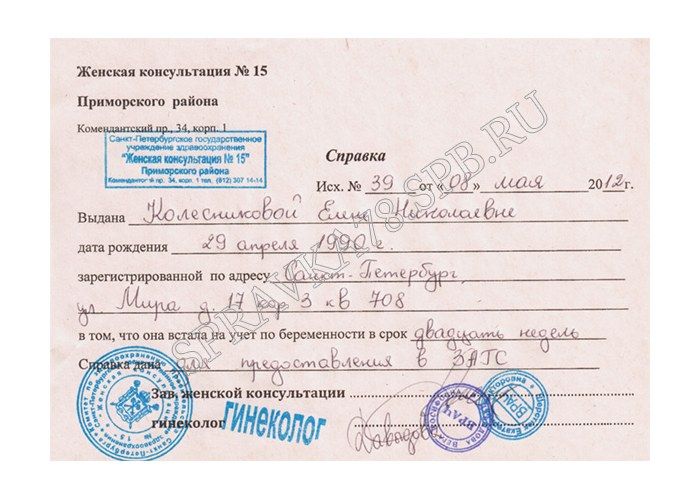 Женская консультация № 15
Приморского района
Комендантский пр., 34, корп. 1
Санкт-Петербургское государственное
учреждение здравоохранения
"Женская консультация № 15"
Приморского района
Комендантский пр. 34, корп. 1 тел. (812) 307 14-14
Справка
Исх. № 39 от «08» мая 2012г.
Выдана Колесниковой Елене Николаевне
дата рождения 29 апреля 1990 г.
зарегистрированной по адресу Санкт-Петербург,
ул. Мира д. 17 кор 3 кв 708
в том, что она встала на учет по беременности в срок двадцать недель
Справка дана для предоставления в ЗАГС
Зав. женской консультации
гинеколог ГИНЕКОЛОГ
Давыдова
ВРАЧ
ВРАЧ
SPRAVKA78SPB.RU